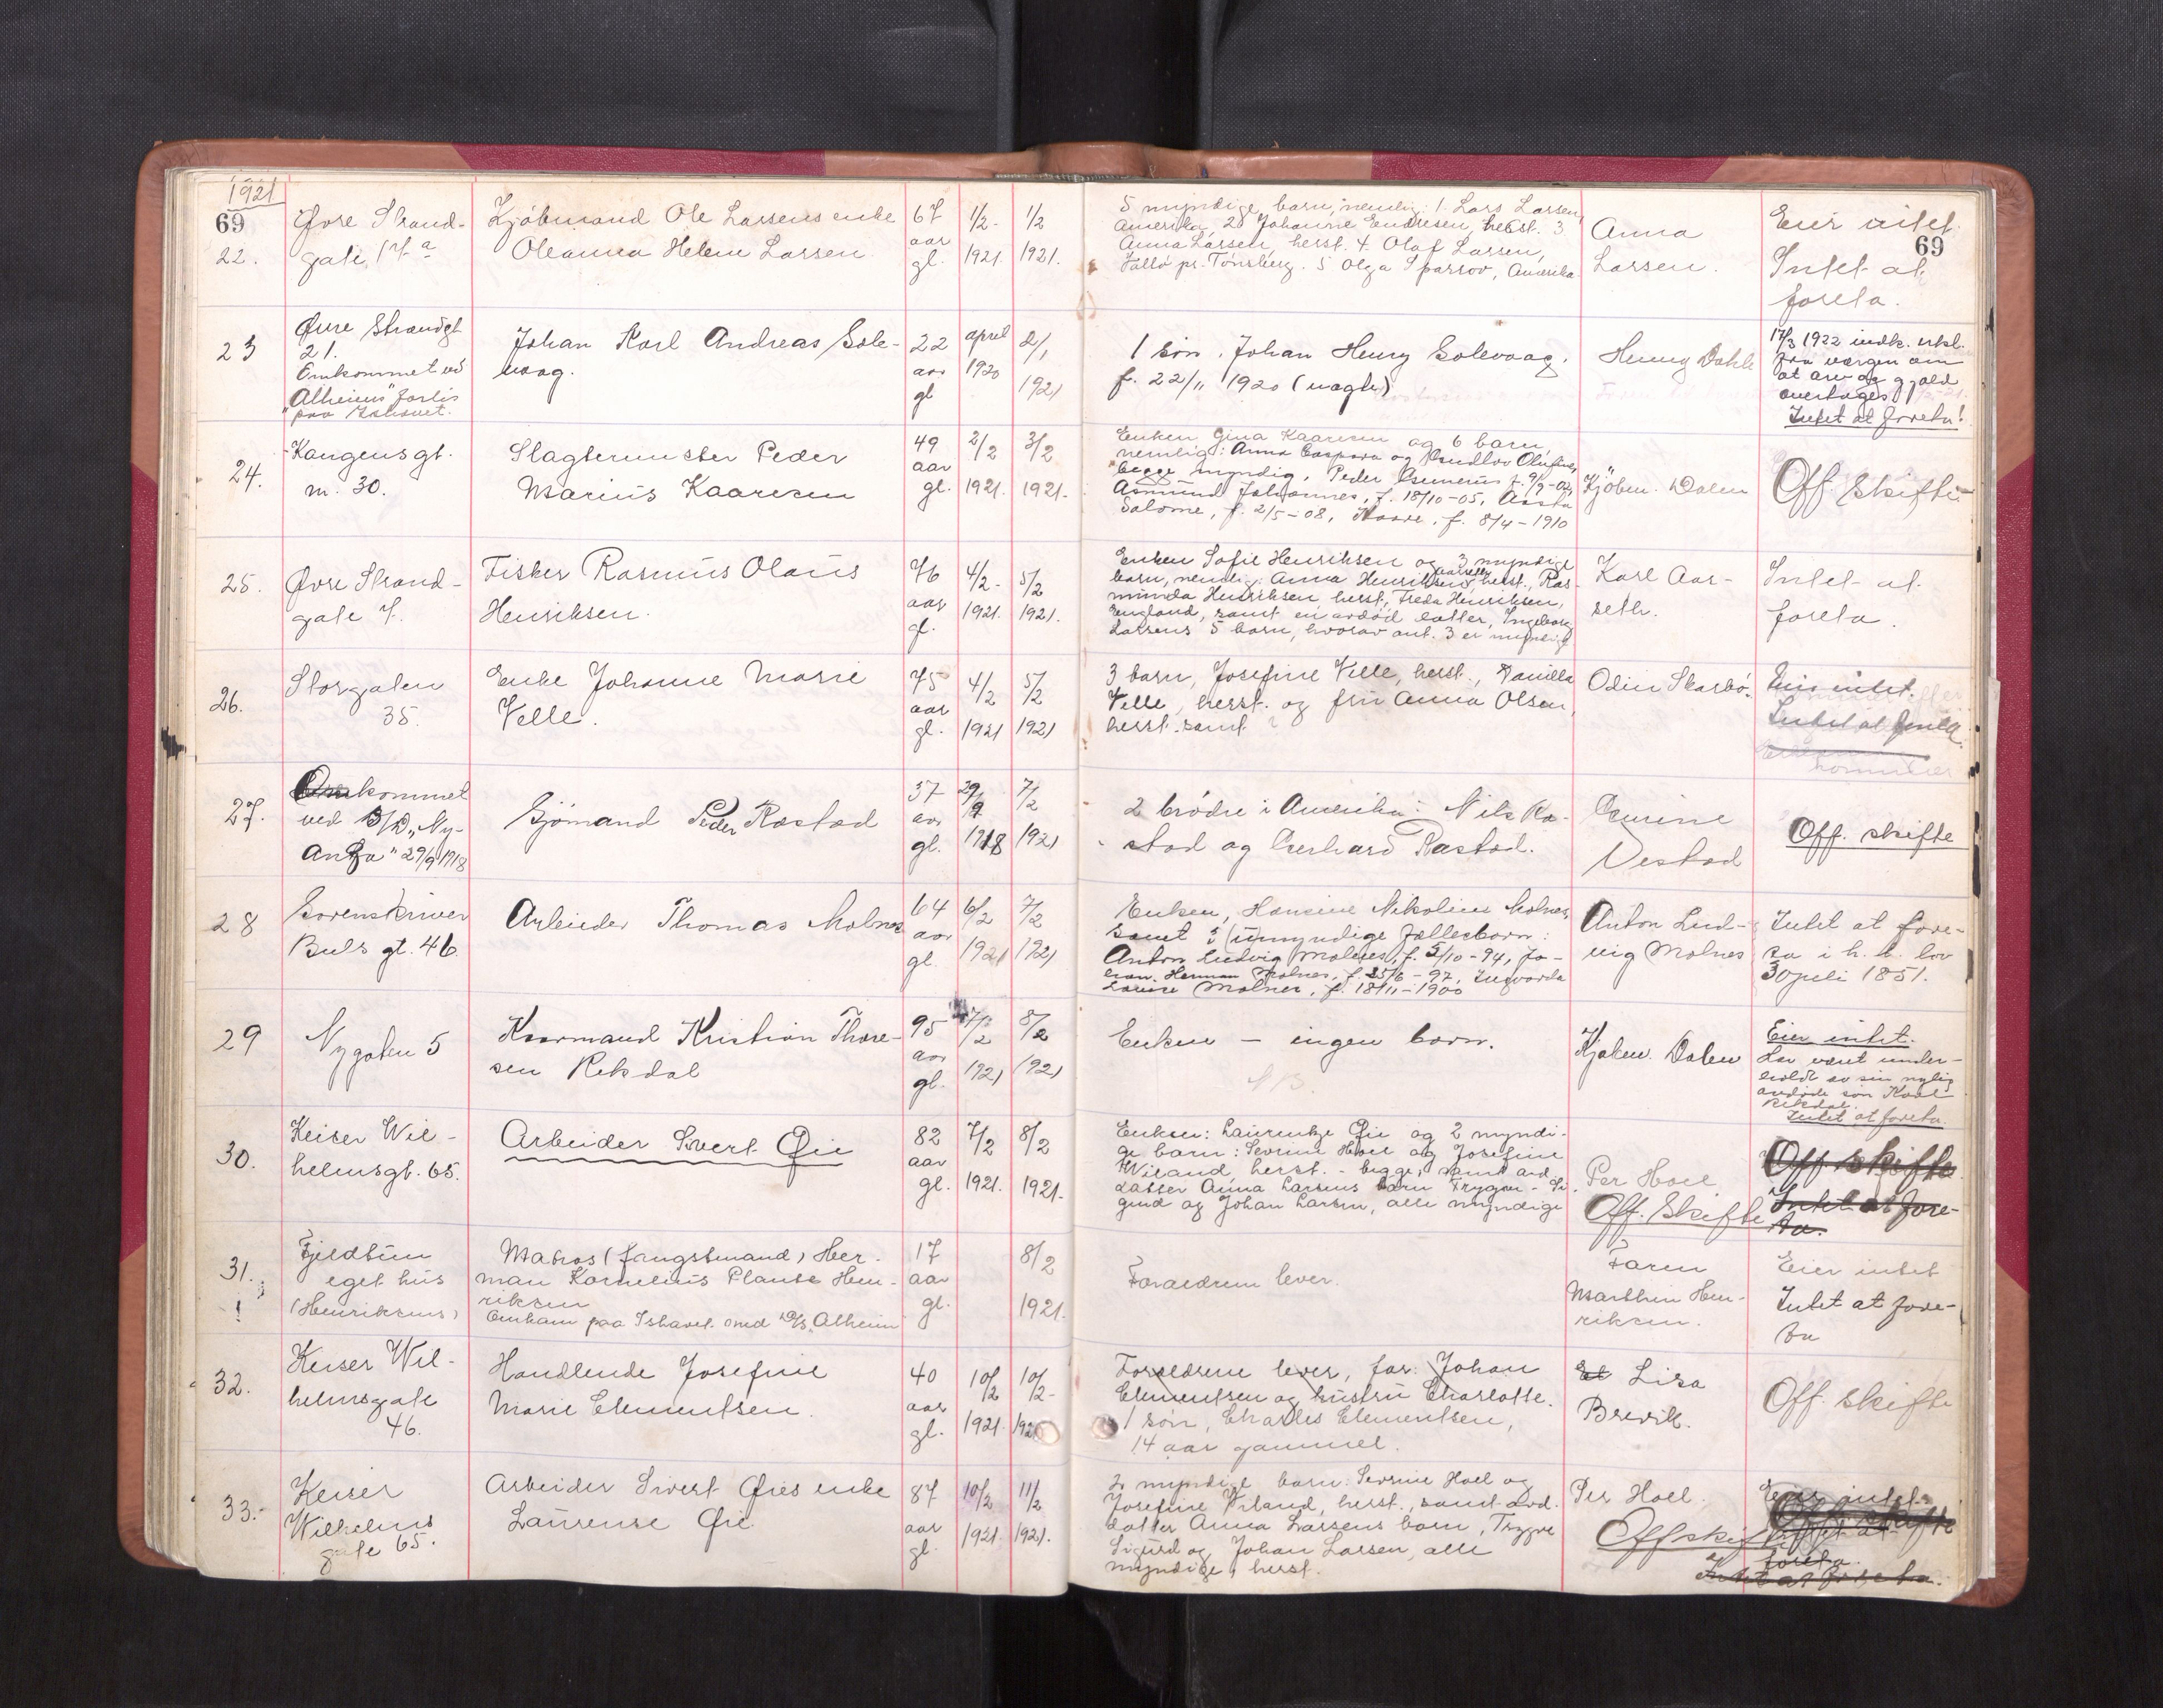 1921
69
22.
Øvre Strand-
gate, 17 a
Kjøbmand Ole Larsens enke
Oleanna Helene Larsen
67
aar
gl.
1/2-
1921.
1/2
1921.
5 myndige barn, nemlig: 1. Lars Larsen,
Amerika, 2 Johanne Endresen, herst. 3
Anna Larsen, herst. 4. Olaf Larsen,
pr. Tønsberg. 5 Olga Sparrov, Amerika
Anna
Larsen.
Eier intet.
69
Intet at
foreta.
23
Øvre Strandgt
21.
Omkommet ved
"Alheims" forlis
paa Ishavet.
Johan Karl Andreas Sole-
vaag.
22
aar
gl
april
1920
2/1
1921
1 søn, Johan Henry Solevaag.
f. 22/11 1920 (uægte)
Henny Dahle
17/3 1922 indk. erkl.
fra værgen om
at arv og gjæld
overtages
Intet at foreta!
24.
Kongensgt.
nr. 30.
Slagtermester Peder
Marius Kaaresen
49
aar
gl.
2/2
1921.
3/2
1921.
Enken Gina Kaaresen og 6 barn,
nemlig: Anna Caspara og Olufine,
begge myndig, Peder f. 9/9-02,
Asmund Johannes, f. 18/10-05, Aasta
Salome, f. 2/5-08, Kaare, f. 8/4-1910
Kjøbm. Dalen
Off. Skifte
25.
Øvre Strand-
gate 7.
Fisker Rasmus Olaus
Henriksen.
76
aar
gl.
4/2-
1921.
5/2
1921.
Enken Sofie Henriksen og 3 myndige
barn, nemlig: Anna Henriksen Aarseth, herst., Ras-
munda Henriksen herst, Freda Henriksen,
England, samt en avdød datter, Ingeborg
Larsens 5 barn, hvorav ant. 3 er myndige
Karl Aar-
seth.
Intet at
foreta.
26.
Storgaten
35.
Enke Johanne Marie
Velle.
75
aar
gl.
4/2
1921
5/2
1921
3 barn, Josefine Velle, herst., Danilla
Velle, herst. og fru Anna Olsen,
herst. samt
Odin Skarbø.
Eier intet.
Intet at foreta.
27.
Omkommet
ved D/D "Ny-
Anga" 29/9 1918
Sjømand Peder Rastad
37
aar
gl.
29/9
1918
7/2
1921
2 brødre i Amerika: Nils Ra-
stad og Gerhard Rastad.
Vestad
Off. skifte
28
Sorenskriver
Buls gt. 46.
Arbeider Thomas Molnes
64
aar
gl.
6/2
1921
7/2
1921
Enken, Hansine Nikoline Molnes,
samt 3 umyndige fællesbarn:
Anton Ludvig Molnes, f. 5/10-94, Jo-
han Herman Molnes, f. 25/6-97, Ingvarda
Lovise Molnes, f. 18/11-1900
Anton Lud-
vig Molnes
Intet at fore-
ta i h. t. lov
30 juli 1851.
29
Nygaten 5
Kaarmand Kristian Thore-
sen Rekdal
95
aar
gl.
7/2
1921
8/2
1921
Enken - ingen barn.
Kjøbm. Dalen
Eier intet.
Har været under-
holdt av sin nylig
avdøde søn Karl
Rekdal.
Intet at foreta.
30.
Keiser Wil-
helmsgt. 65.
Arbeider Sivert Øie
82
aar
gl.
7/2
1921.
8/2
1921.
Enken: Laurentze Øie og 2 myndi-
ge barn: Severine Hoel og Josefine
Wiland herst. - begge, samt avd.
datter Anna Larsens barn Trygve - Si-
gurd og Johan Larsen, alle myndige
Per Hoel
Off. Skifte
Off. skifte
Intet at fore-
ta.
31.
Fjeldtun
eget hus
(Henriksens)
Matros (fangstmand) Her-
man Kornelius Plante Hen-
riksen
Omkam paa Ishavet med D/S Alheim
17
aar
gl.
8/2
1921.
Forældrene lever.
Faren
Marthin Hen-
riksen.
Eier intet
Intet at fore-
ta
32.
Keiser Wil-
helmsgate
46.
Handlende Josefine
Marie Clementsen.
40
aar
gl.
10/2
1921.
10/2-
1921
Forældrene lever, far: Johan
Clementsen og hustru Charlotte.
1 søn, Charles Clementsen,
14 aar gammel.
Lisa
Brevik.
Off. skifte
33.
Keiser
Wilhelms
gate 65.
Arbeider Sivert Øies enke
Laurense Øie
87
aar
gl.
10/2
1921.
11/2
1921.
2 myndige barn: Severine Hoel og
Josefine Wiland, herst., samt avd.
datter Anna Larsens barn, Trygve
Sigurd og Johan Larsen, alle
myndige, herst.
Per Hoel.
Off skifte
Eier intet.
Off. skifte
Intet at
foreta.
Intet at foreta.